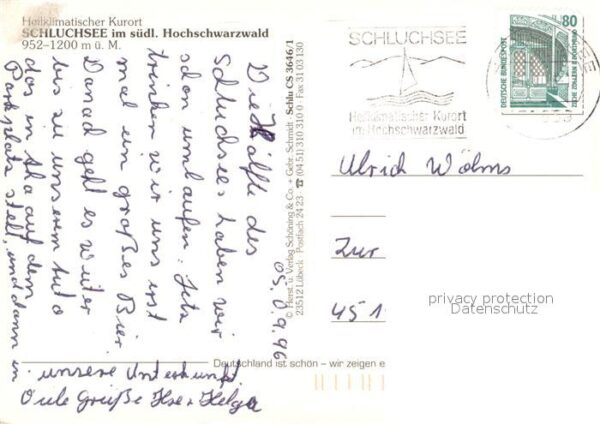 Heilklimatischer Kurort
SCHLUCHSEE im südl. Hochschwarzwald
952–1200 m ü. M.
05.09.96
Die Hälfte des
Schluchsees haben wir
schon umlaufen. Jetzt
trinken wir uns erst
mal ein großes Bier.
Danach geht es weiter
bis zu unserem Auto
das in Aha auf dem
Parkplatz steht, und dann in
unsere Unterkunft.
Viele Grüße Ilse + Helga
© Herst. u. Verlag Schöning & Co. + Gebr. Schmidt · Schlu CS 3646/1
23512 Lübeck · Postfach 24 23 · ☎ (04 51) 310 310 0 · Fax 31 03 130
Deutschland ist schön – wir zeigen e
SCHLUCHSEE
Heilklimatischer Kurort
im Hochschwarzwald
80
DEUTSCHE BUNDESPOST
ZECHE ZOLLERN II DORTMUND
Ulrich Wölms
Zur
451
privacy protection
Datenschutz